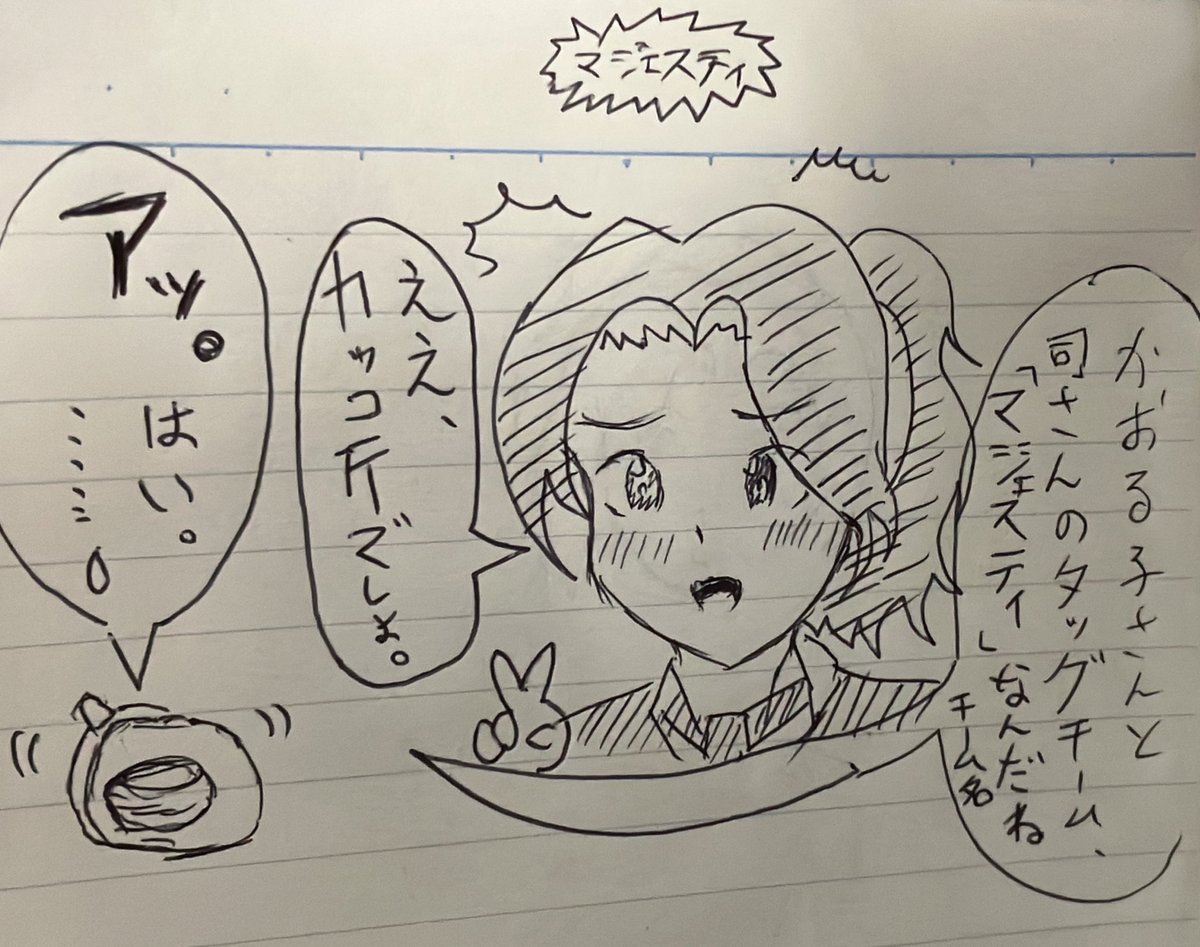 マジェスティ
かおる子さんと
司さんのタッグチーム、
「マジェスティ」なんだね
チーム名
ええ、
カッコイイでしょ。
アッ。はい。
……